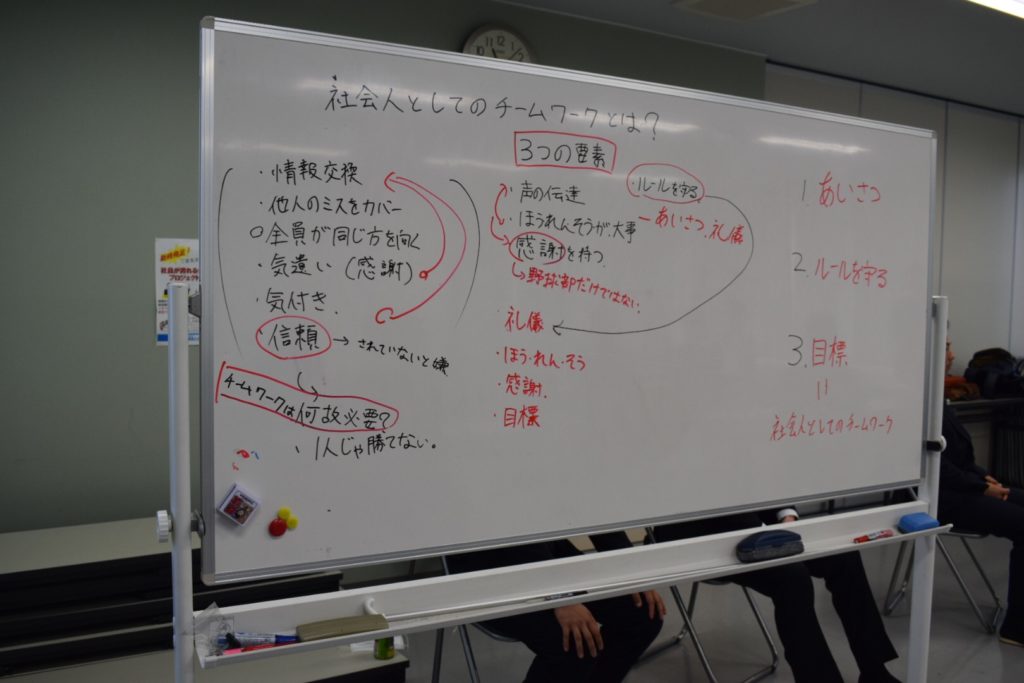 社会人としてのチームワークとは?
3つの要素
・情報交換
・他人のミスをカバー
○全員が同じ方を向く
・気遣い(感謝)
・気付き
信頼 → されていないと嫌
チームワークは何故必要?
・1人じゃ勝てない。
・声の伝達
・ルールを守る
・ほうれんそうが大事
- あいさつ、礼儀
感謝を持つ
↳野球部だけではない
・礼儀
・ほう・れん・そう
・感謝
・目標
1. あいさつ
2. ルールを守る
3. 目標
=
社会人としてのチームワーク